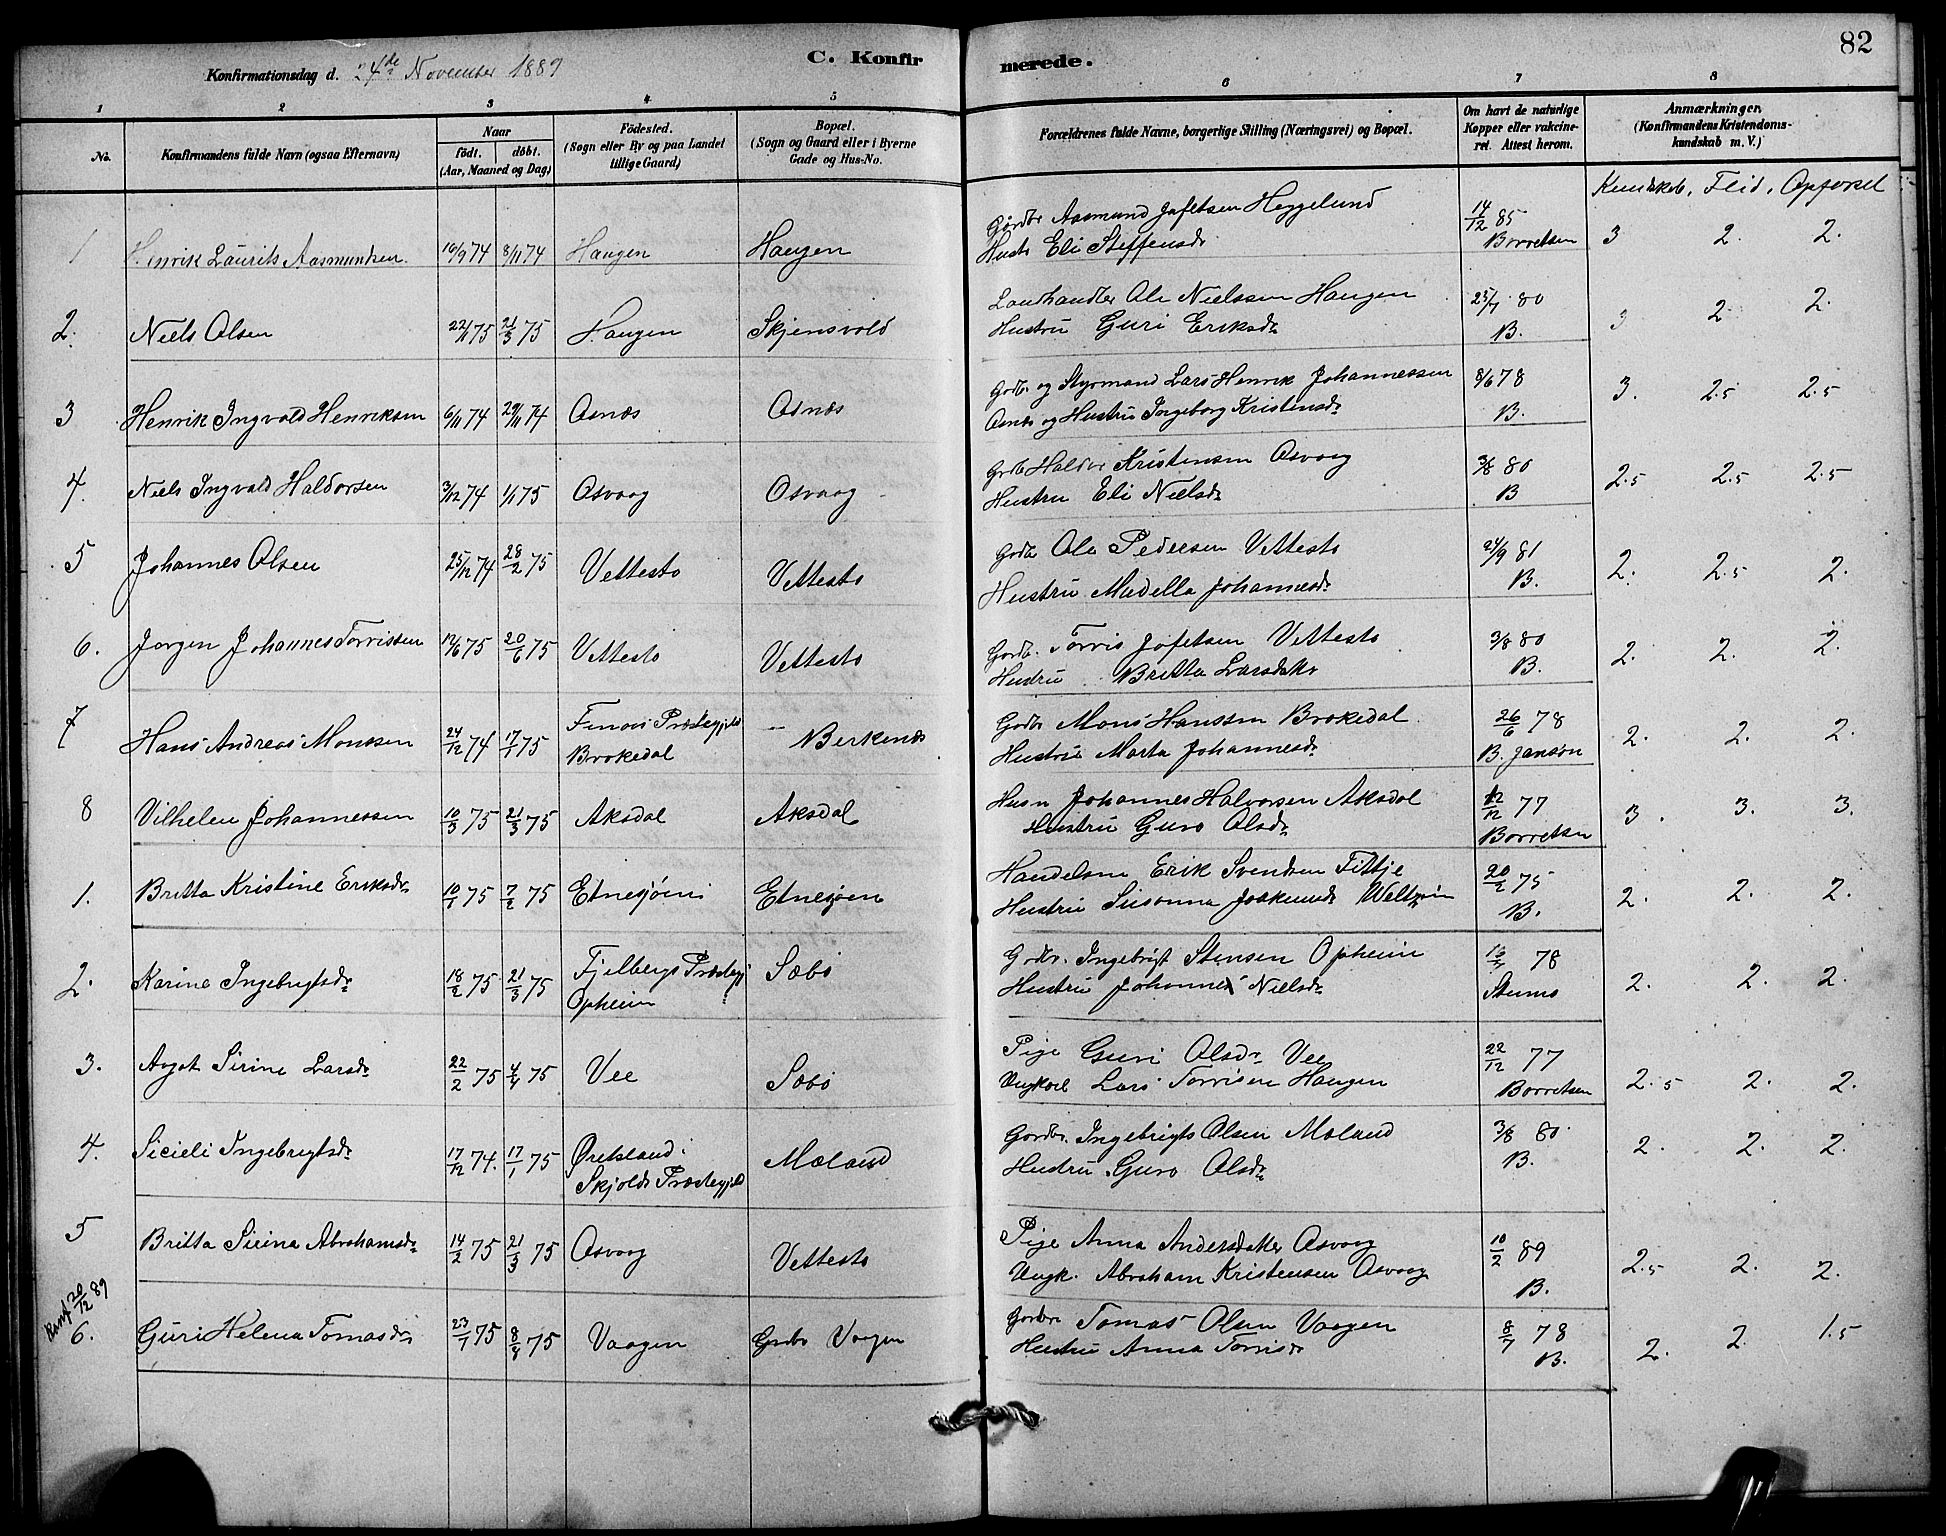 82
Konfirmationsdag d. 24de November 1889
C. Konfirmerede.
1 2 3 4 5 6 7 8
No.
Konfirmandens fulde Navn (ogsaa Efternavn)
Naar
født. døbt.
(Aar, Maaned og Dag)
Fødested.
(Sogn eller By og paa Landet
tillige Gaard)
Bopæl.
(Sogn og Gaard eller i Byerne
Gade og Hus-No.
Forældrenes fulde Navne, borgerlige Stilling (Næringsvei) og Bopæl.
Om havt de naturlige
Kopper eller vakcine-
ret. Attest herom.
Anmærkninger.
(Konfirmandens Kristendoms-
kundskab m. V.)
Kundskab, Flid, Opførsel
1 Henrik Laurits Aasmundsen 16/9 74 8/11 74 Haugen Haugen Gårdbr Aasmund Jofetsen Heggelund 14/12 85
Hustr Eli Steffensdr Borretsen 3 2. 2.
2. Niels Olsen 22/1 75 21/3 75 Haugen Skjensvold Landhandler Ole Nielssen Haugen 23/7 80
Hustru Guri Eriksdr B. 3 2 2.
3 Henrik Ingvald Henriksen 6/11 74 29/11 74 Osnæs Osnæs Grdb. og Styrmand Lars Henrik Johannessen 8/6 78
Osnæs og Hustru Ingeborg Kristensdr B. 3. 2.5 2.5
4. Niels Ingvald Haldorsen 3/12 74 1/1 75 Osvaag Osvaag Grdb Haldor Kristensen Osvaag 3/8 80
Hustru Eli Nielsdr B 2.5 2.5 2.5
5 Johannes Olsen 25/12 74 28/2 75 Vettestø Vettestø Grdb Ole Pedersen Vettestø 24/9 81
Hustru Madella Johannesdr B. 2. 2.5 2.
6. Jørgen Johannes Torrissen 12/6 75 20/6 75 Vettestø Vettestø Gordb. Torris Jofetsen Vettestø 3/8 80
Hustru Britta Larsdatter B. 2. 2. 2.
7 Hans Andreas Monssen 24/12 74 17/1 75 Finnøi Præstegjeld
Brokedal Berkenes Grdbr Mons Hanssen Brokedal 26/6 78
Hustru Marta Johannesdr B. Janson 2. 2. 2.
8 Vilhelm Johannessen 10/3 75 21/3 75 Aksdal Aksdal Husm Johannes Halvorsen Aksdal 12/12 77
Hustru Guro Olsdr Borretsen 3. 3. 3.
1. Britta Kristine Eriksdr 10/1 75 7/2 75 Etnesjøen Etnesjøen Handelsm Erik Svendsen Fittje 20/2 75
Hustru Susanna Joakimsdr Weltzin B. 2. 2. 2.
2. Karine Ingebrigtsdr 18/2 75 21/3 75 Fjelbergs Præstegj
Opheim Sæbø Grdbr. Ingebrigt Stensen Opheim 78
Hustru Johanne Nielsdr 2. 2. 2.
3. Aagot Sirine Larsdr 22/2 75 4/4 75 Vee Sæbø Pige Guri Olsdr Vee 22/12 77
Ungkarl Lars Torrisen Haugen Borretsen 2.5 2. 2.
4. Sicieli Ingebrigtsdr 17/12 74. 17/1 75 Ørelsland
Skjolds Præstegjeld Mæland Gordbr. Ingebrigts Olsen Mæland 3/8 80
Hustru Guro Olsdr B. 2. 2. 2.
5 Britta Sirina Abrahamsdr 14/2 75 21/3 75 Osvaag Vettestø Pige Anna Andersdatter Osvaag 10/2 89
Ungk. Abraham Kristensen Osvaag B. 2.5 2. 2.
Konf 20/12 89
6. Guri Helena Tomasdr 23/7 75 8/8 75 Vaagen Grdbr Vaagen Gordbr Tomas Olsen Vaagen 8/7 78
Hustru Anna Torrisdr B. 2. 2. 1.5